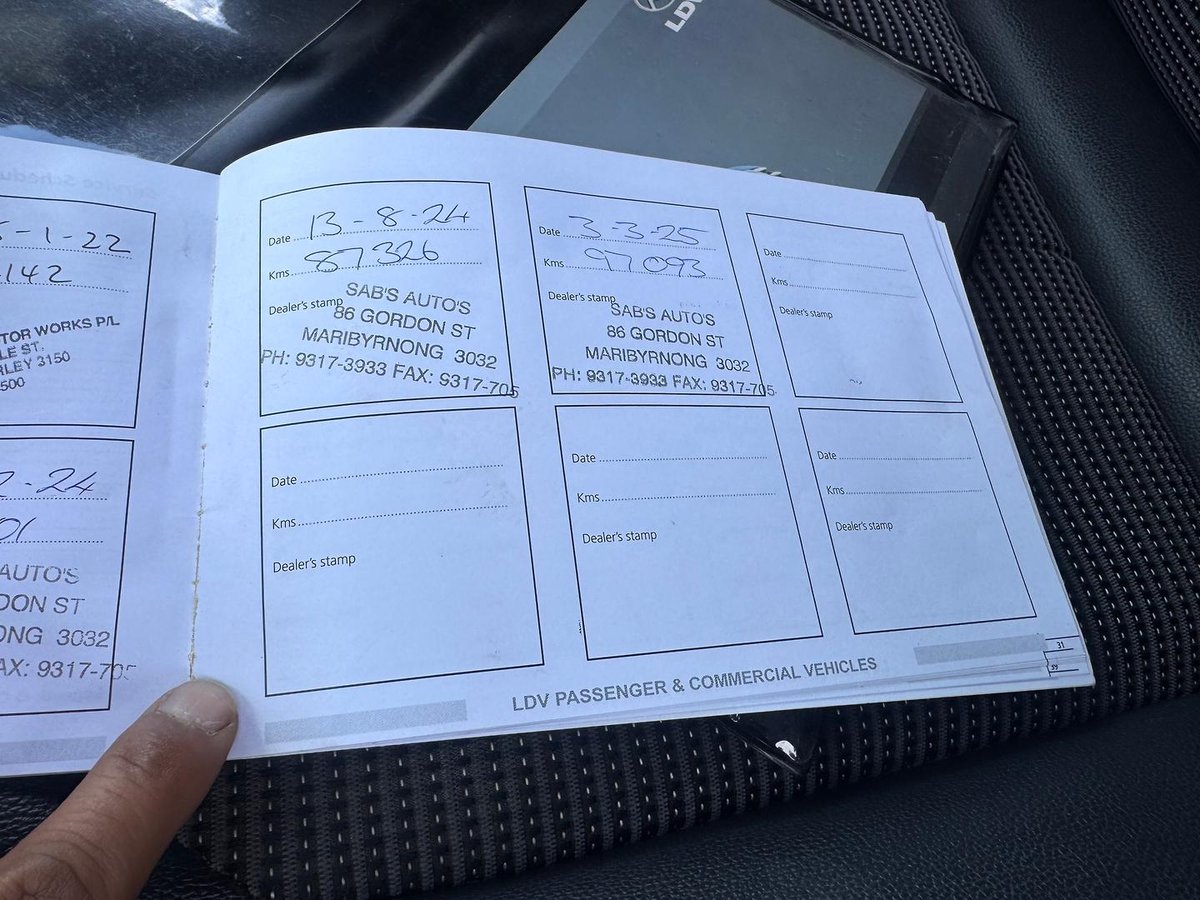 LDV
5-1-22
142
TOR WORKS P/L
LE ST.
RLEY 3150
500
2-24
01
AUTO'S
DON ST
ONG 3032
AX: 9317-705
Date 13-8-24
Kms 87326
Dealer's stamp
SAB'S AUTO'S
86 GORDON ST
MARIBYRNONG 3032
PH: 9317-3933 FAX: 9317-705
Date 3-3-25
Kms 97093
Dealer's stamp
SAB'S AUTO'S
86 GORDON ST
MARIBYRNONG 3032
PH: 9317-3933 FAX: 9317-705
Date
Kms
Dealer's stamp
Date
Kms
Dealer's stamp
Date
Kms
Dealer's stamp
Date
Kms
Dealer's stamp
LDV PASSENGER & COMMERCIAL VEHICLES
31